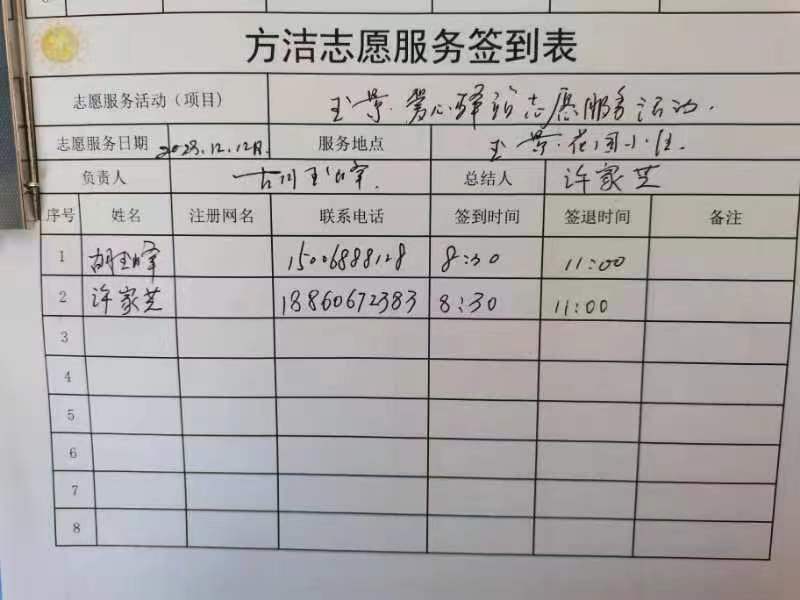 方洁志愿服务签到表
志愿服务活动（项目） 玉景爱心驿站志愿服务活动.
志愿服务日期 2023.12.12日. 服务地点 玉景花园小区.
负责人 胡玉峰. 总结人 许家芝
序号 姓名 注册网名 联系电话 签到时间 签退时间 备注
1 胡玉峰 15006888128 8:30 11:00
2 许家芝 18860672383 8:30 11:00
3
4
5
6
7
8